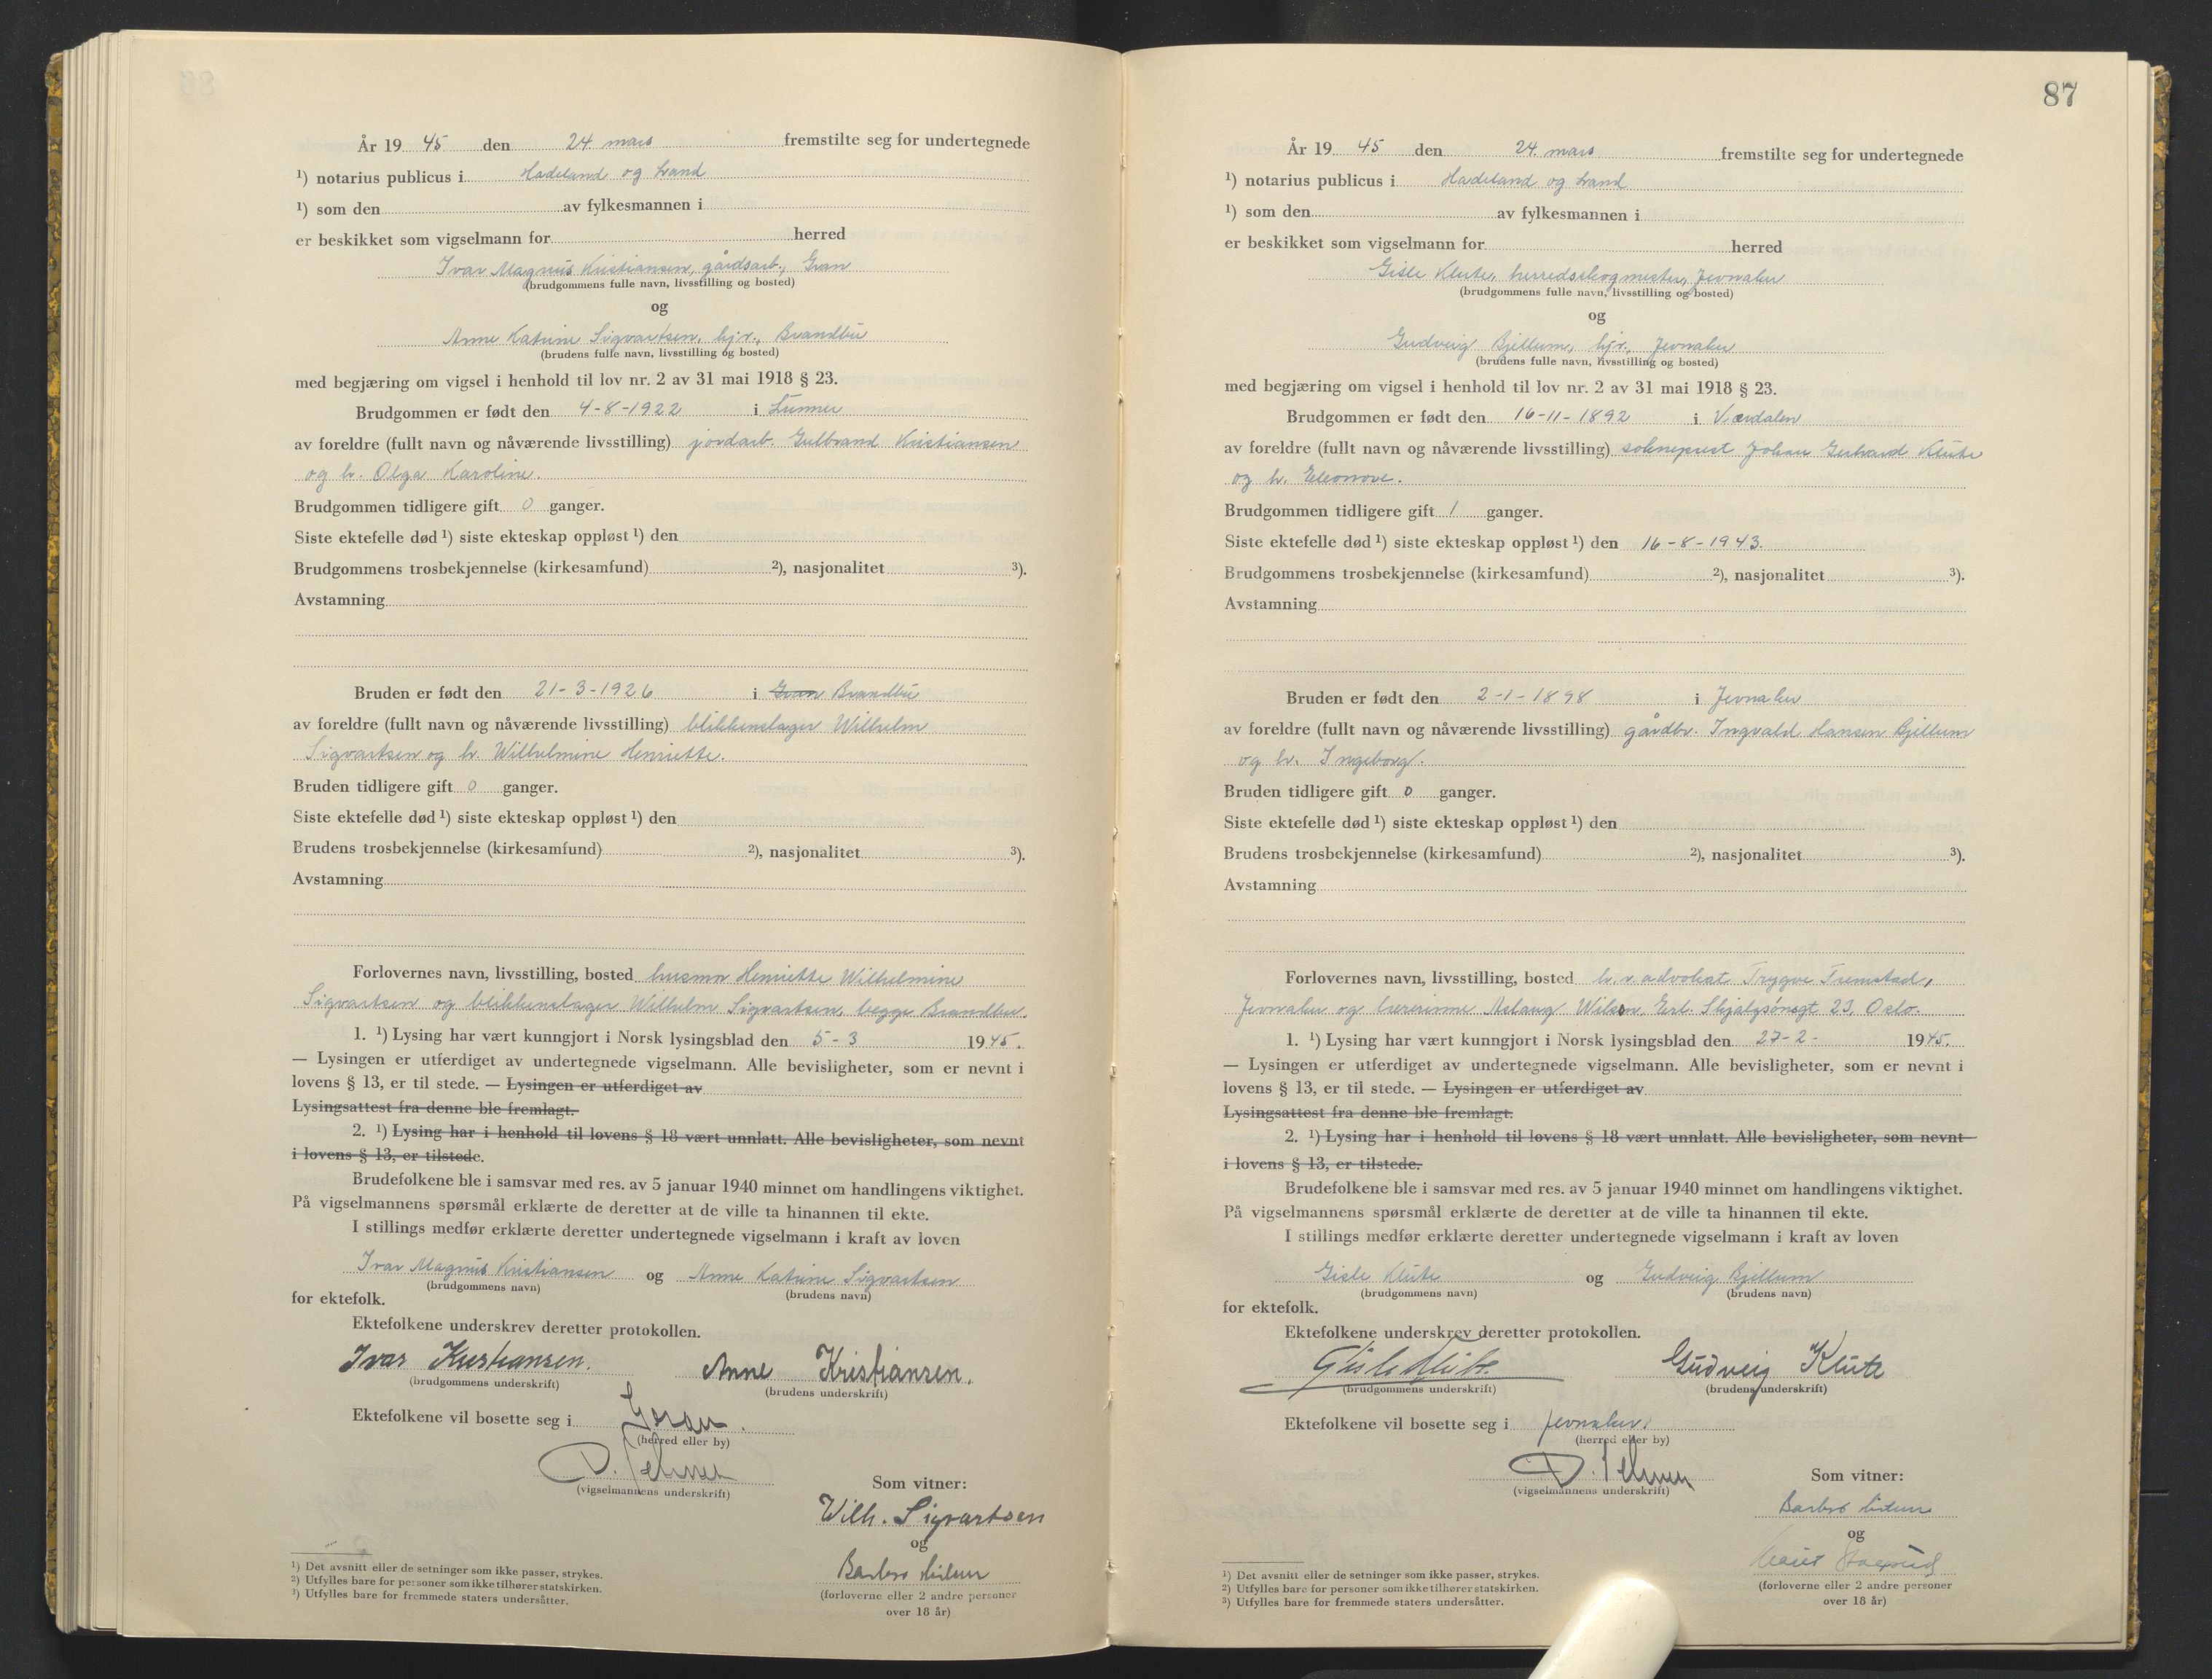 År 19 45 den 24. mars fremstilte seg for undertegnede
¹) notarius publicus i Hadeland og Land
¹) som den av fylkesmannen i
er beskikket som vigselmann for herred
Ivar Magnus Kristiansen, gårdsarb., Gran
(brudgommens fulle navn, livsstilling og bosted)
og
Anne Katrine Sigvartsen, hjv., Brandbu
(brudens fulle navn, livsstilling og bosted)
med begjæring om vigsel i henhold til lov nr. 2 av 31 mai 1918 § 23.
Brudgommen er født den 4-8-1922 i Lunner
av foreldre (fullt navn og nåværende livsstilling) jordarb. Gulbrand Kristiansen
og h. Olga Karoline.
Brudgommen tidligere gift 0 ganger.
Siste ektefelle død ¹) siste ekteskap oppløst ¹) den
Brudgommens trosbekjennelse (kirkesamfund) ²), nasjonalitet ³).
Avstamning
Bruden er født den 21-3-1926 i Gran Brandbu
av foreldre (fullt navn og nåværende livsstilling) blikkenslager Wilhelm
Sigvartsen og h. Wilhelmine Henriette.
Bruden tidligere gift 0 ganger.
Siste ektefelle død ¹) siste ekteskap oppløst ¹) den
Brudens trosbekjennelse (kirkesamfund) ²), nasjonalitet ³).
Avstamning
Forlovernes navn, livsstilling, bosted husmor Henriette Wilhelmine
Sigvartsen og blikkenslager Wilhelm Sigvartsen, begge Brandbu.
1. ¹) Lysing har vært kunngjort i Norsk lysingsblad den 5-3 1945.
— Lysingen er utferdiget av undertegnede vigselmann. Alle bevisligheter, som er nevnt i
lovens § 13, er til stede. — Lysingen er utferdiget av
Lysingsattest fra denne ble fremlagt.
2. ¹) Lysing har i henhold til lovens § 18 vært unnlatt. Alle bevisligheter, som nevnt
i lovens § 13, er tilstede.
Brudefolkene ble i samsvar med res. av 5 januar 1940 minnet om handlingens viktighet.
På vigselmannens spørsmål erklærte de deretter at de ville ta hinannen til ekte.
I stillings medfør erklærte deretter undertegnede vigselmann i kraft av loven
Ivar Magnus Kristiansen og Anne Katrine Sigvartsen
(brudgommens navn) (brudens navn)
for ektefolk.
Ektefolkene underskrev deretter protokollen.
Ivar Kristiansen. Anne Kristiansen.
(brudgommens underskrift) (brudens underskrift)
Ektefolkene vil bosette seg i Gran.
(herred eller by)
(vigselmannens underskrift)
Som vitner:
Wilh. Sigvartsen
og
Barbro
(forloverne eller 2 andre personer
over 18 år)
¹) Det avsnitt eller de setninger som ikke passer, strykes.
²) Utfylles bare for personer som ikke tilhører statskirken.
³) Utfylles bare for fremmede staters undersåtter.
87
År 19 45 den 24. mars fremstilte seg for undertegnede
¹) notarius publicus i Hadeland og Land
¹) som den av fylkesmannen i
er beskikket som vigselmann for herred
Gisle Klute, herredsskogmester, Jevnaker
(brudgommens fulle navn, livsstilling og bosted)
og
Gudveig Bjellum, hjv., Jevnaker
(brudens fulle navn, livsstilling og bosted)
med begjæring om vigsel i henhold til lov nr. 2 av 31 mai 1918 § 23.
Brudgommen er født den 16-11-1892 i Værdalen
av foreldre (fullt navn og nåværende livsstilling) sokneprest Johan Gerhard Klute
og h. Eleonore.
Brudgommen tidligere gift 1 ganger.
Siste ektefelle død ¹) siste ekteskap oppløst ¹) den 16-8-1943.
Brudgommens trosbekjennelse (kirkesamfund) ²), nasjonalitet ³).
Avstamning
Bruden er født den 2-1-1898 i Jevnaker
av foreldre (fullt navn og nåværende livsstilling) gårdbr. Ingvald Hansen Bjellum
og h. Ingeborg.
Bruden tidligere gift 0 ganger.
Siste ektefelle død ¹) siste ekteskap oppløst ¹) den
Brudens trosbekjennelse (kirkesamfund) ²), nasjonalitet ³).
Avstamning
Forlovernes navn, livsstilling, bosted h.r.advokat Trygve Tremstad,
Jevnaker og lærerinne Aslaug Wilson, Erl. Skjalgsönsgt 23, Oslo.
1. ¹) Lysing har vært kunngjort i Norsk lysingsblad den 27-2- 1945.
— Lysingen er utferdiget av undertegnede vigselmann. Alle bevisligheter, som er nevnt i
lovens § 13, er til stede. — Lysingen er utferdiget av
Lysingsattest fra denne ble fremlagt.
2. ¹) Lysing har i henhold til lovens § 18 vært unnlatt. Alle bevisligheter, som nevnt
i lovens § 13, er tilstede.
Brudefolkene ble i samsvar med res. av 5 januar 1940 minnet om handlingens viktighet.
På vigselmannens spørsmål erklærte de deretter at de ville ta hinannen til ekte.
I stillings medfør erklærte deretter undertegnede vigselmann i kraft av loven
Gisle Klute og Gudveig Bjellum
(brudgommens navn) (brudens navn)
for ektefolk.
Ektefolkene underskrev deretter protokollen.
Gisle Klute. Gudveig Klute
(brudgommens underskrift) (brudens underskrift)
Ektefolkene vil bosette seg i Jevnaker.
(herred eller by)
(vigselmannens underskrift)
Som vitner:
Barbro
og
(forloverne eller 2 andre personer
over 18 år)
¹) Det avsnitt eller de setninger som ikke passer, strykes.
²) Utfylles bare for personer som ikke tilhører statskirken.
³) Utfylles bare for fremmede staters undersåtter.